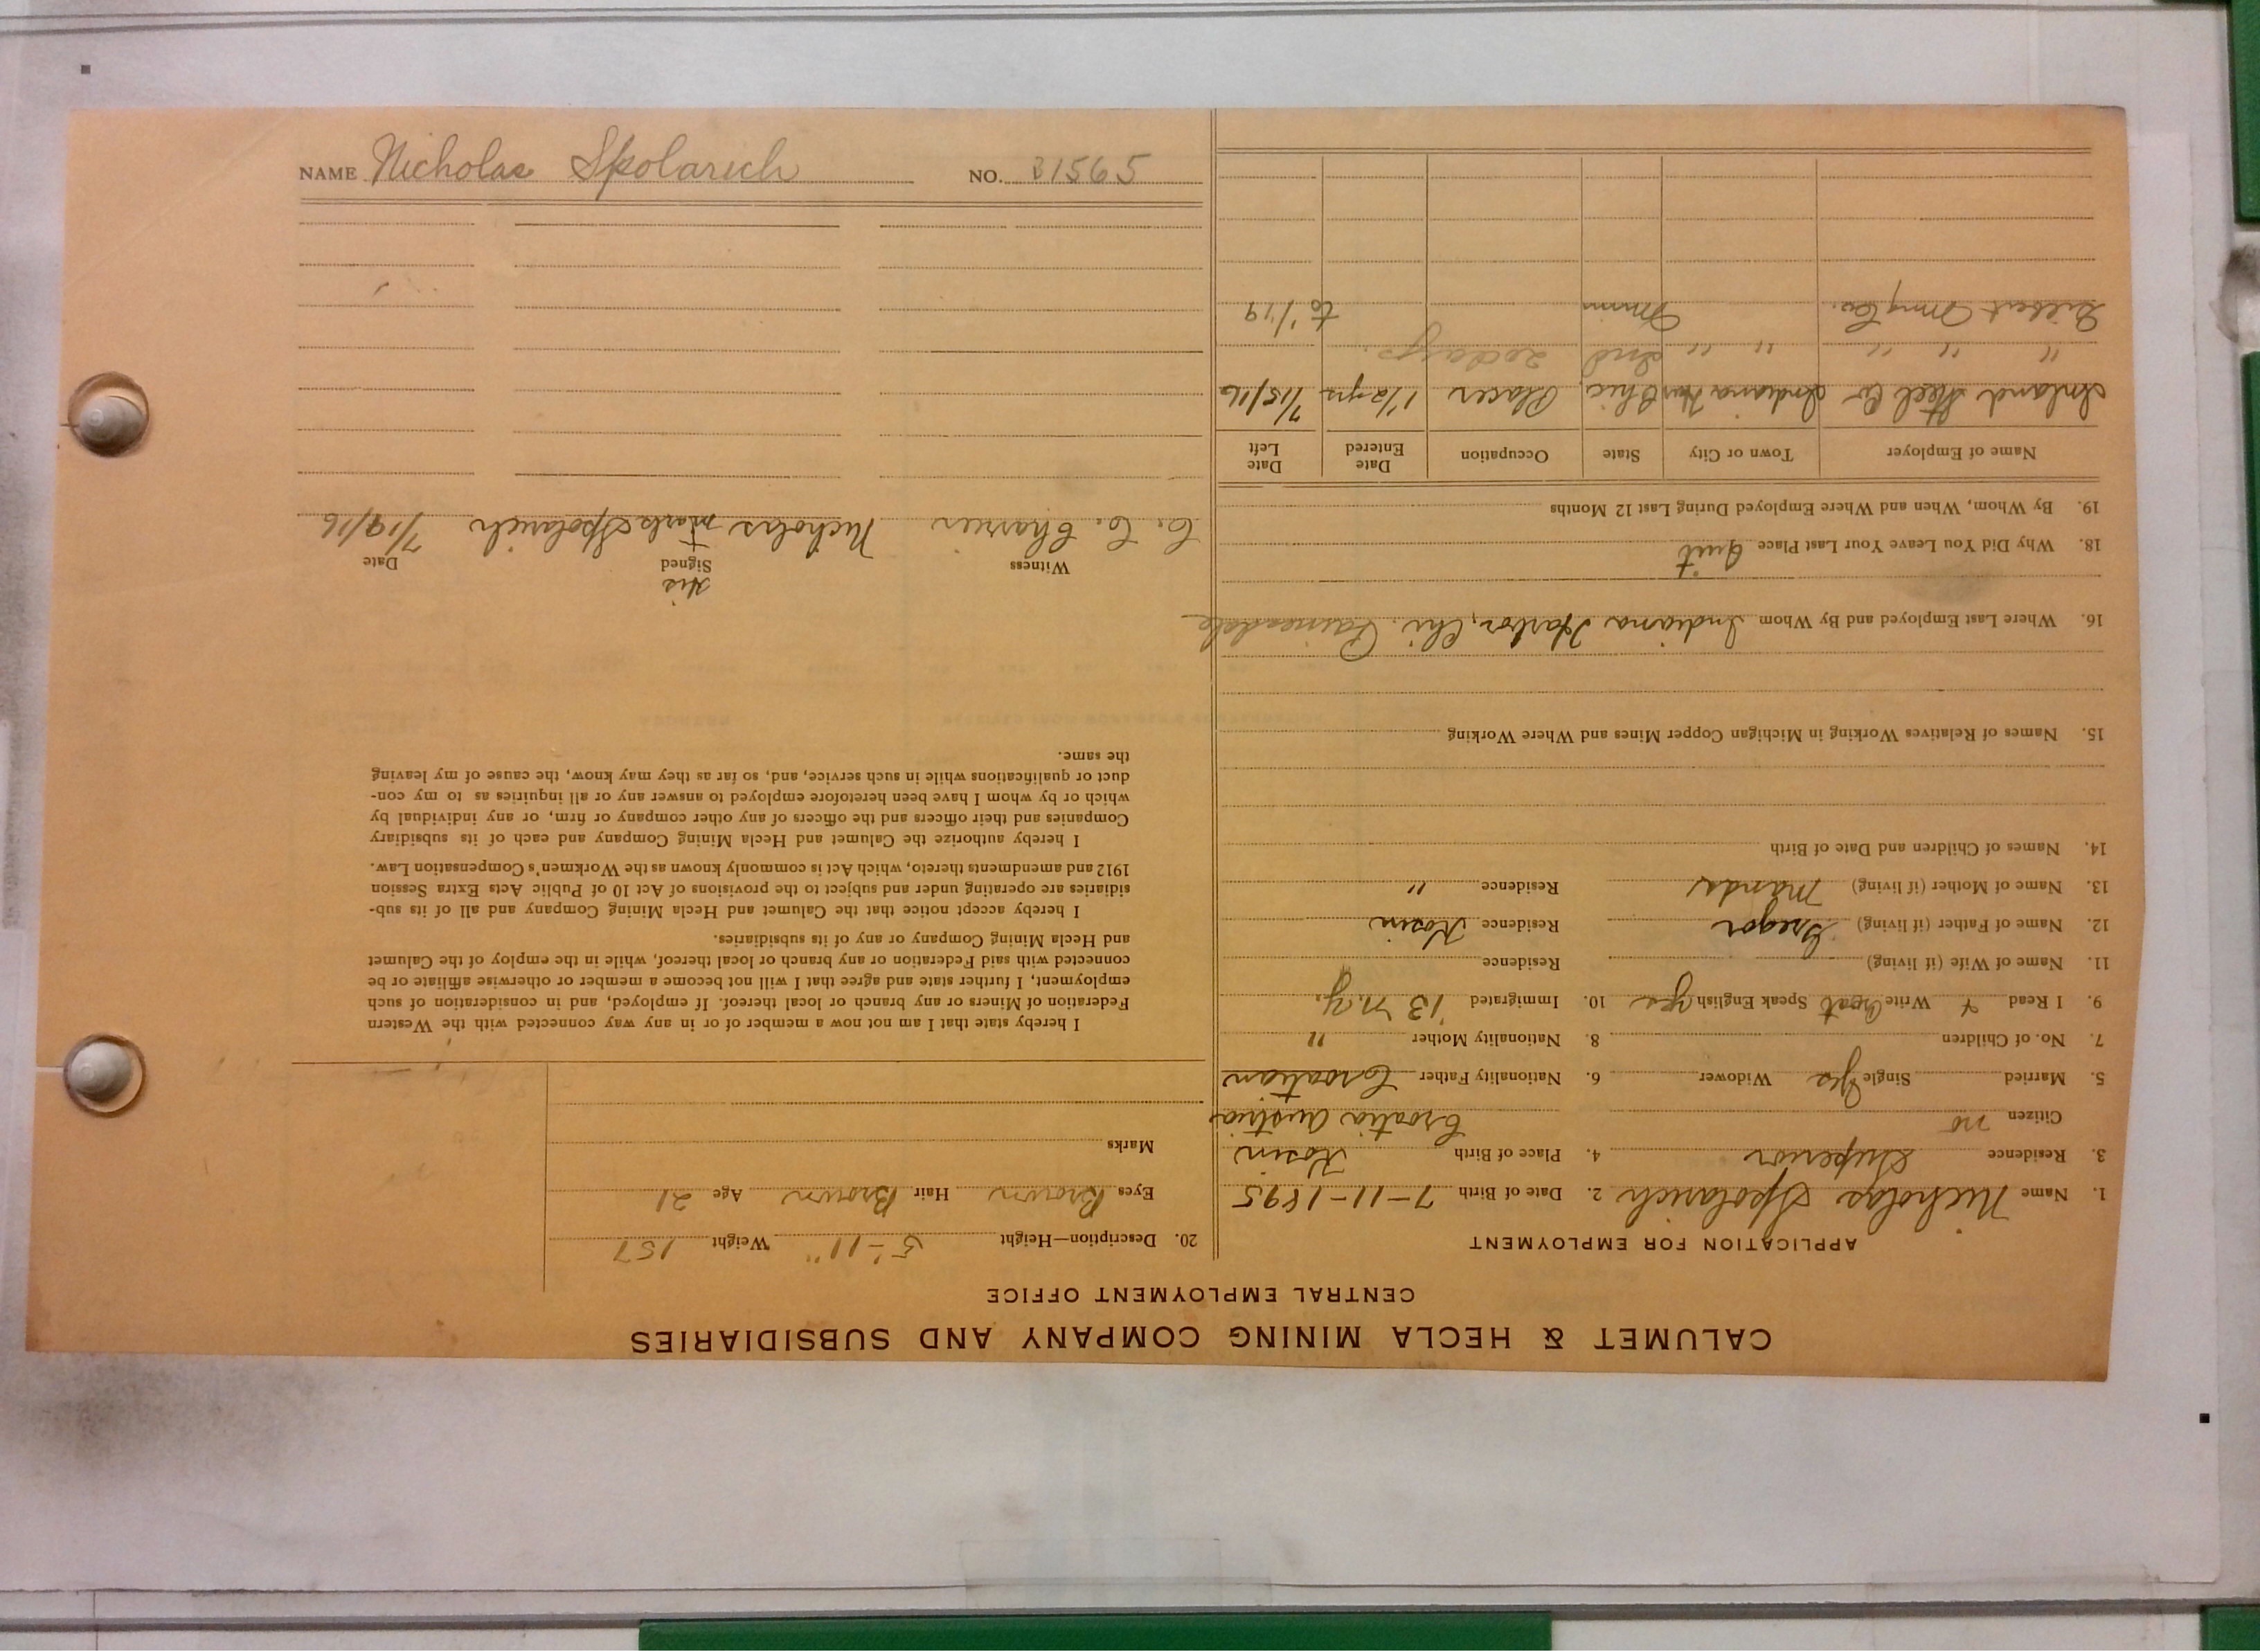 CALUMET & HECLA MINING COMPANY AND SUBSIDIARIES
CENTRAL EMPLOYMENT OFFICE
APPLICATION FOR EMPLOYMENT
1. Name Nicholas Spolarich 2. Date of Birth 7-11-1895
3. Residence Superior 4. Place of Birth Kosin
Citizen no Croatia Austria
5. Married Single Yes Widower 6. Nationality Father Croatian
7. No. of Children 8. Nationality Mother "
9. I Read + Write Croat Speak English yes 10. Immigrated '13 N.Y.
11. Name of Wife (if living) Residence
12. Name of Father (if living) Gregor Residence Kosin
13. Name of Mother (if living) Manda Residence "
14. Names of Children and Date of Birth
15. Names of Relatives Working in Michigan Copper Mines and Where Working
16. Where Last Employed and By Whom Indiana Harbor, Chi. Painesdale
18. Why Did You Leave Your Last Place Quit
19. By Whom, When and Where Employed During Last 12 Months
Name of Employer Town or City State Occupation Date Entered Date Left
Inland Steel Co Indiana Har Chic. Placer 1 1/2 yrs 7/15/16
" " " " " Ind 20 days.
Gilbert Mng Co. Minn to 1/19
20. Description—Height 5'-11" Weight 157
Eyes Brown Hair Brown Age 21
Marks
I hereby state that I am not now a member of or in any way connected with the Western
Federation of Miners or any branch or local thereof. If employed, and in consideration of such
employment, I further state and agree that I will not become a member or otherwise affiliate or be
connected with said Federation or any branch or local thereof, while in the employ of the Calumet
and Hecla Mining Company or any of its subsidiaries.
I hereby accept notice that the Calumet and Hecla Mining Company and all of its sub-
sidiaries are operating under and subject to the provisions of Act 10 of Public Acts Extra Session
1912 and amendments thereto, which Act is commonly known as the Workmen's Compensation Law.
I hereby authorize the Calumet and Hecla Mining Company and each of its subsidiary
Companies and their officers and the officers of any other company or firm, or any individual by
which or by whom I have been heretofore employed to answer any or all inquiries as to my con-
duct or qualifications while in such service, and, so far as they may know, the cause of my leaving
the same.
His
Witness Signed Date
C. C. Charies Nicholas + mark Spolarich 7/19/16
NAME Nicholas Spolarich NO. 31565